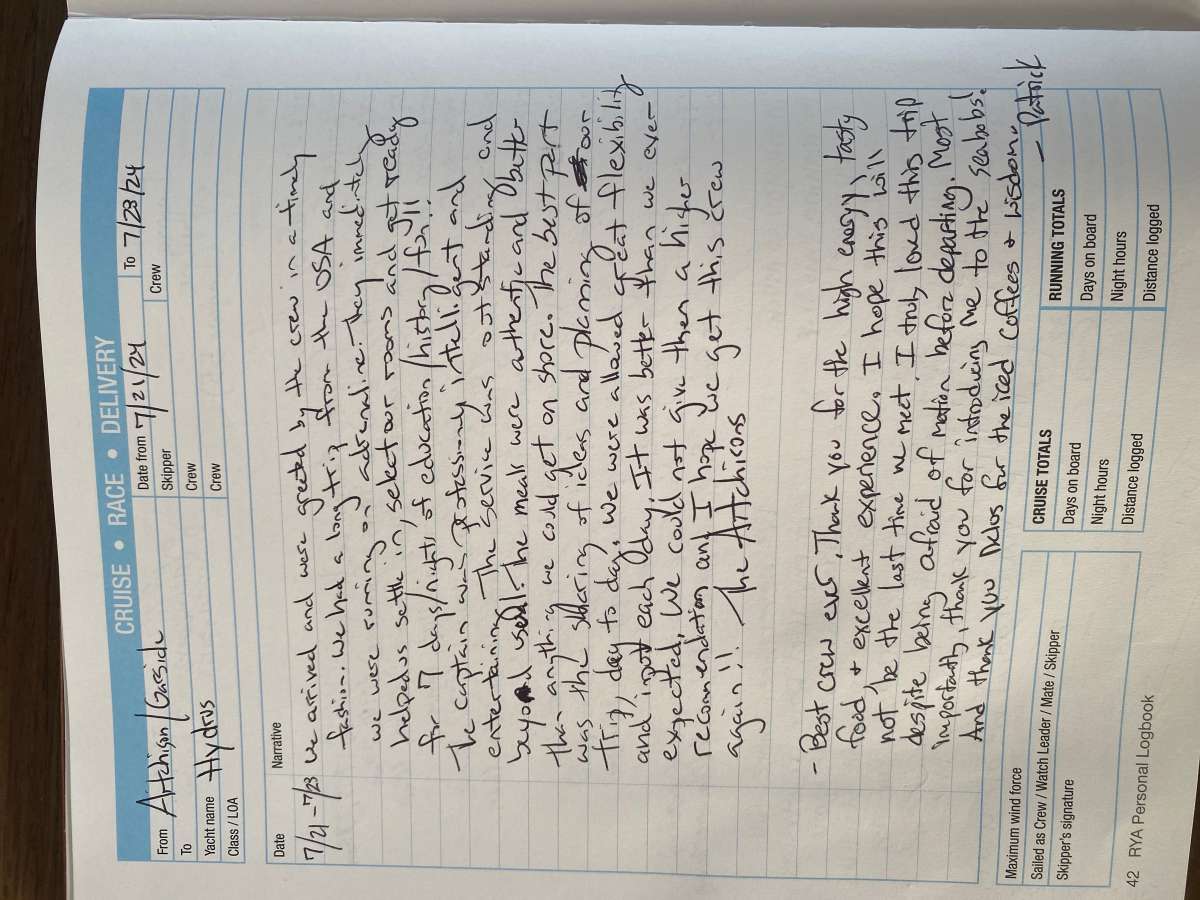 CRUISE • RACE • DELIVERY
From Aitchison / Gaside
Date from 7/21/24 To 7/28/24
To
Skipper Crew
Yacht name Hydrus
Crew
Class / LOA
Crew
Date Narrative
7/21-7/28 We arrived and were greeted by the crew in a timely
fashion. We had a long trip from the USA and
we were running on adrenaline. They immediately
helped us settle in, select our rooms and get ready
for 7 days/nights of education/history/fun!!
The captain was professional, intelligent and
entertaining. The service was outstanding and
beyond The meals were authentic and better
than anything we could get on shore. The best part
was the sharing of ideas and planning of our
trip, day to day. We were allowed great flexibility
and input each day. It was better than we ever
expected. We could not give them a higher
recommendation and I hope we get this crew
again!! The Aitchisons
- Best crew ever, Thank you for the high energy, tasty
food, + excellent experience. I hope this will
not be the last time we meet. I truly loved this trip
despite being afraid of motion before departing. Most
importantly, thank you for introducing me to the seabobs!
And thank you Delos for the iced coffees + wisdom.
- Patrick
Maximum wind force
Sailed as Crew / Watch Leader / Mate / Skipper
Skipper's signature
CRUISE TOTALS
Days on board
Night hours
Distance logged
RUNNING TOTALS
Days on board
Night hours
Distance logged
42 RYA Personal Logbook